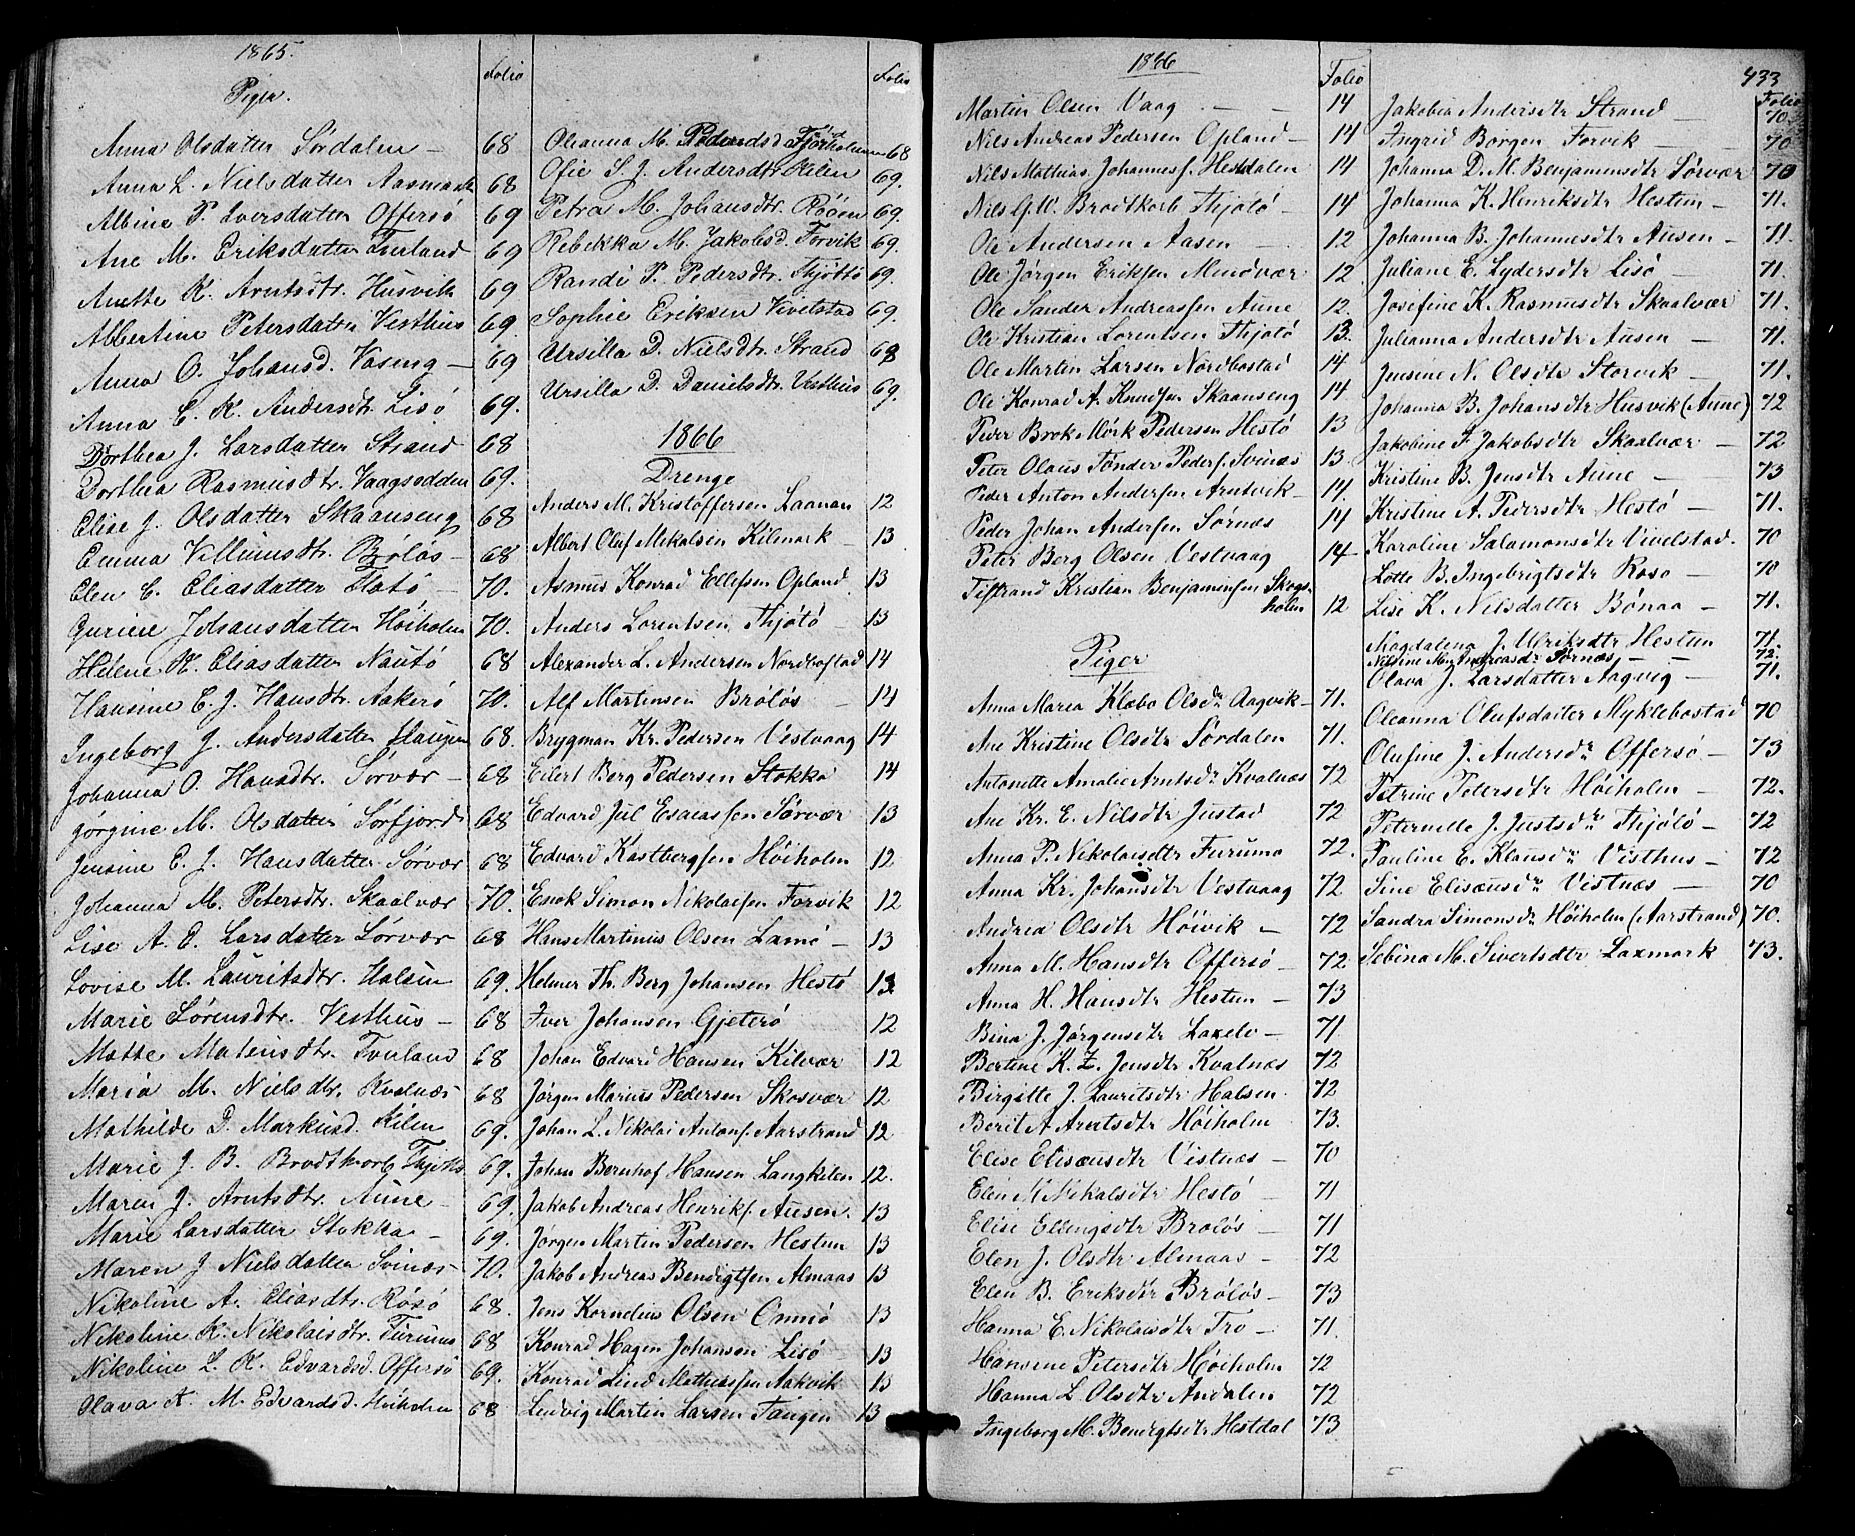 1865.
Piger.
Folio
Anna Olsdatter Sørdalen — 68
Anna L. Nielsdatter Aasmark 68
Albina P. Iversdatter Offersø 69
Ane M. Eriksdatter Tverland 69
Anette K. Arntsdtr. Husvik 69
Albertine Petersdatter Visthus 69.
Anna O. Johansd. Vasing — 69
Anna E. K. Andersdtr Lisø 69.
Dorthea J. Larsdatter Strand 68
Dorthea Rasmusdtr. Vaagsodden 69.
Elise J. Olsdatter Skaanseng 68
Emma Villumsdtr. Brøløs — 68
Elen E. Eliasdatter Flatø — 70.
Gurine Johansdatter Høiholm 70.
Helene K. Eliasdatter Nautø 68
Hansine E. J. Hansdtr. Aakerø 70.
Ingeborg J. Andersdatter Haugen 68.
Johanna O. Hansdtr. Sørvær — 68
Jørgine M. Olsdatter Sørfjord 68
Jensine E. J. Hansdatter Sørvær 68
Johanna M. Petersdtr. Skaalvær 70.
Lise A. E. Larsdatter Sørvær 68
Lovise M. Lauritsdtr. Halsen 69.
Marie Sørensdtr. Visthus — 68
Mette Mateusdtr. Tverland 68
Maria M. Nielsdtr. Kvalnæs 68
Mathilde D. Markusd. Kilen 69.
Marie J. B. Brodtkorb Thjøtø 69.
Maren J. Arntsdtr. Aune — 69.
Marie Larsdatter Stokka — 69.
Maren J Nielsdatter Svinæs 70.
Nikoline A. Eliasdtr. Røsø 68.
Nikoline K. Nikolaisdtr. Furumo 68
Nikoline L. K. Edvardsd. Offersø 69.
Olava A. M. Edvardsd. Høiholm 68
Folio
Oleanna M. Pedersd Fjørholmen 68
Ofie S. J. Andersdtr. Kilen 69.
Petra M. Johansdtr. Røøen 69.
Rebekka M. Jakobsd. Forvik 69.
Randi P. Pedersdtr. Thjøttø 69.
Sophie Eriksen Vivelstad 69.
Ursilla D. Nielsdtr. Strand 68
Ursilla D. Danielsdtr. Visthus 69.
1866
Drenge
Anders M. Kristoffersen Laanan 12
Albert Oluf Mikalsen Kilmark — 13
Asmus Konrad Ellefsen Opland. 13
Anders Lorentsen Thjøtø — 13
Alexander L. Andersen Nordbostad 14
Alf Martinsen Brøløs — 14
Brygman Kr. Pedersen Vestvaag 14
Eilert Berg Pedersen Stokka 14
Edvard Jul Esaiassen Sørvær 13
Edvard Kastbergsen Høiholm 12
Enok Simon Nikolaisen Forvik 12
Hans Martinus Olsen Lamø — 13
Helmer Th. Berg Johansen Hestø 13
Iver Johansen Gjeterø 12
Johan Edvard Hansen Kilvær 12
Jørgen Marius Pedersen Skosvær 12
Johan L. Nikolai Antonf. Aarstrand 12
Johan Bernhof Hansen Langkilen 12.
Jakob Andreas Henrikf. Ausen. 13
Jørgen Martin Pedersen Hestun 13
Jakob Andreas Bendigtsen Almaas 13
Jens Kornelius Olsen Onnø 13
Konrad Hagen Johansen Lisø 13
Konrad Lind Mathiassen Aakvik 13
Ludvig Martin Larsen Tangen 13
1866
Folio
Martin Olsen Vaag — — 14
Nils Andreas Pedersen Opland — 14
Nils Mathias Johannesf. Hestdalen 14
Nils G. W. Brodtkorb Thjøtø — 14
Ole Andersen Aasen — 12
Ole Jørgen Eriksen Mindvær 12.
Ole Sander Andreassen Aune 12.
Ole Kristian Lorentsen Thjøtø 13.
Ole Martin Larsen Nordbostad 14
Ole Konrad A. Knudsen Skaanseng 14.
Peder Brok Mørk Pedersen Hestø 13
Peter Olaus Tønder Pedersf. Svinæs 13
Peder Anton Andersen Arntvik — 14.
Peder Johan Andersen Sørnæs 14
Peter Berg Olsen Vestvaag 14
Tistrand Kristian Benjaminsen Skogs-
holm 12
Piger
Anna Maria Klæbo Olsdr Aagvik — 71.
Ane Kristine Olsdtr Sørdalen 71.
Antonette Amalie Arntsdr Kvalnæs 72
Ane Kr. E. Nilsdtr Justad 72
Anna P. Nikolaisdtr Furumo 72.
Anna Kr. Johansdtr Vestvaag 72
Andrea Olsdtr Høivik — 72
Anna M. Hansdtr Offersø — 72
Anna H. Hansdtr Hestun — 73
Bina J. Jørgensdtr Laxelv — 71
Bertine K. Z. Jensdtr Kvalnæs 72
Birgitte J. Lauritsdtr Halsen 72
Berit A Arntsdtr Høiholm 73.
Elise Elisæusdtr Vistnæs — 70
Elen M Nikalsdtr Hestø — 71
Elise Ellingsdtr Brøløs — 71
Elen J. Olsdtr Almaas — 72
Elen B. Eriksdtr Brøløs — 73
Hanna E. Nikolaisdtr Tro — 71.
Hansine Petersdtr Høiholm 72
Hanna L. Olsdtr Andalen 72
Ingeborg M. Bendigtsdtr Hestdal 73
433
Folio
Jakobea Andersdtr Strand — 70.
Ingrid Børgen Forvik — — 70
Johanna D. M. Benjaminsdtr Sørvær 70
Johanna K. Henriksdtr Hestun — 71.
Johanna B. Johannesdtr Ausen — 71.
Juliane E. Lydersdtr Lisø — 71.
Josefine K. Rasmusdtr Skaalvær 71.
Julianna Andersdtr Ausen — 71.
Jensine N. Olsdtr Storvik — 71.
Johanna B. Johansdtr Husvik (Aune) 72
Jakobine F. Jakobsdtr Skaalvær — 72
Kristine B. Jensdtr Aune — 73
Kristine A. Pedersdtr Hestø — 71.
Karoline Salamonsdtr Vivelstad. 70
Lotte B. Ingebrigtsdtr Roso — 70
Lise K. Nilsdatter Bønaa — 71.
Magdalena J. Ulriksdtr Hestun 71.
Nilsine M. Andreasdr Sørnæs — — 72.
Olava J. Larsdatter Aagvig — 71.
Oleanna Olufsdatter Myklebostad 70
Olufine J. Andersdr Offersø — 73
Petrine Petersdtr Høiholm — 72.
Peternelle J. Justsdr Thjøtø — 72
Pauline E. Klausdr Visthus — 72
Sine Elisæusdr Vistnæs — 70
Sandra Simonsdr Høiholm (Aarstrand) 70.
Sebina M. Sivertsdtr Laxmark 73.